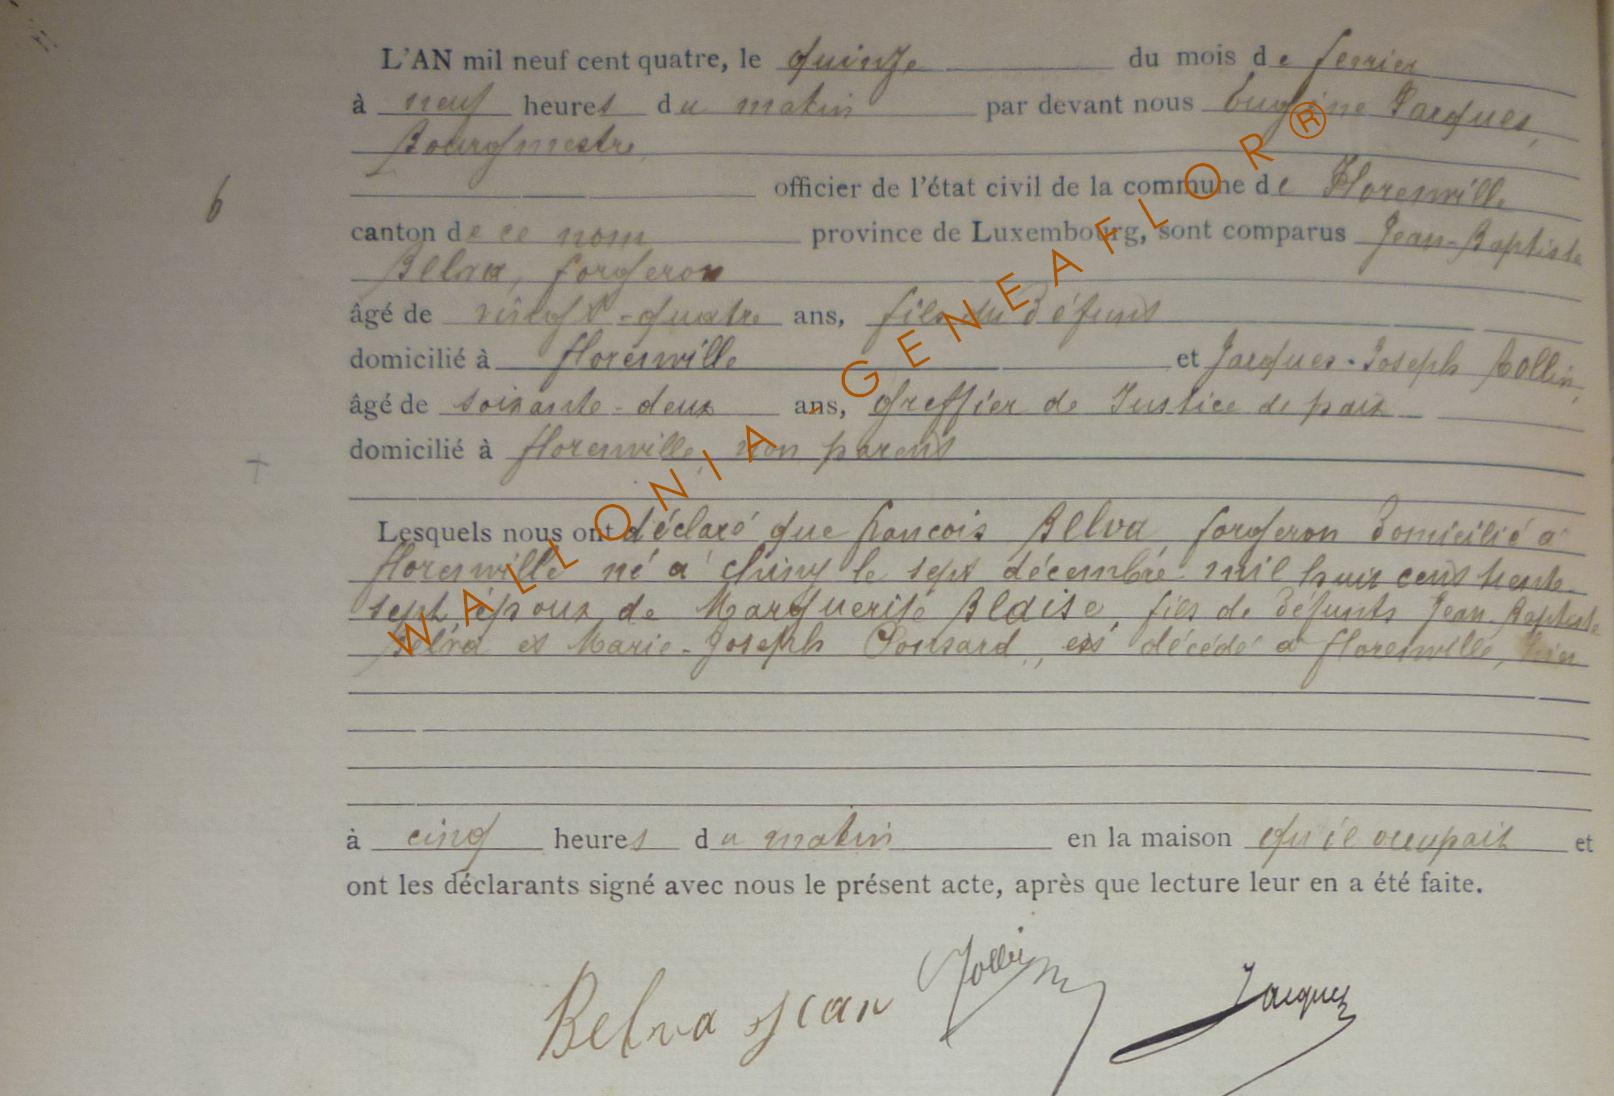 L'AN mil neuf cent quatre, le quinze du mois de fevrier
à neuf heures du matin par devant nous Eugène Jacques,
Bourgmestre,
officier de l'état civil de la commune de Florenville
6
canton de ce nom province de Luxembourg, sont comparus Jean-Baptiste
Belva, forgeron
âgé de vingt-quatre ans, fils du défunt
domicilié à florenville et Jacques-Joseph Rollin,
âgé de soixante-deux ans, Greffier de Justice de paix
domicilié à florenville, non parent
Lesquels nous ont déclaré que françois Belva forgeron domicilié à
florenville né à chiny le sept décembre mil huit cent trente-
sept, époux de Marguerite Blaise, fils de défunts Jean-Baptiste
Belva et Marie-Joseph Ponsard, est décédé à florenville, hier
à cinq heures du matin en la maison qu'il occupait et
ont les déclarants signé avec nous le présent acte, après que lecture leur en a été faite.
Belva Jean Rollin Jacques
WALLONIA - GENEAFLOR®